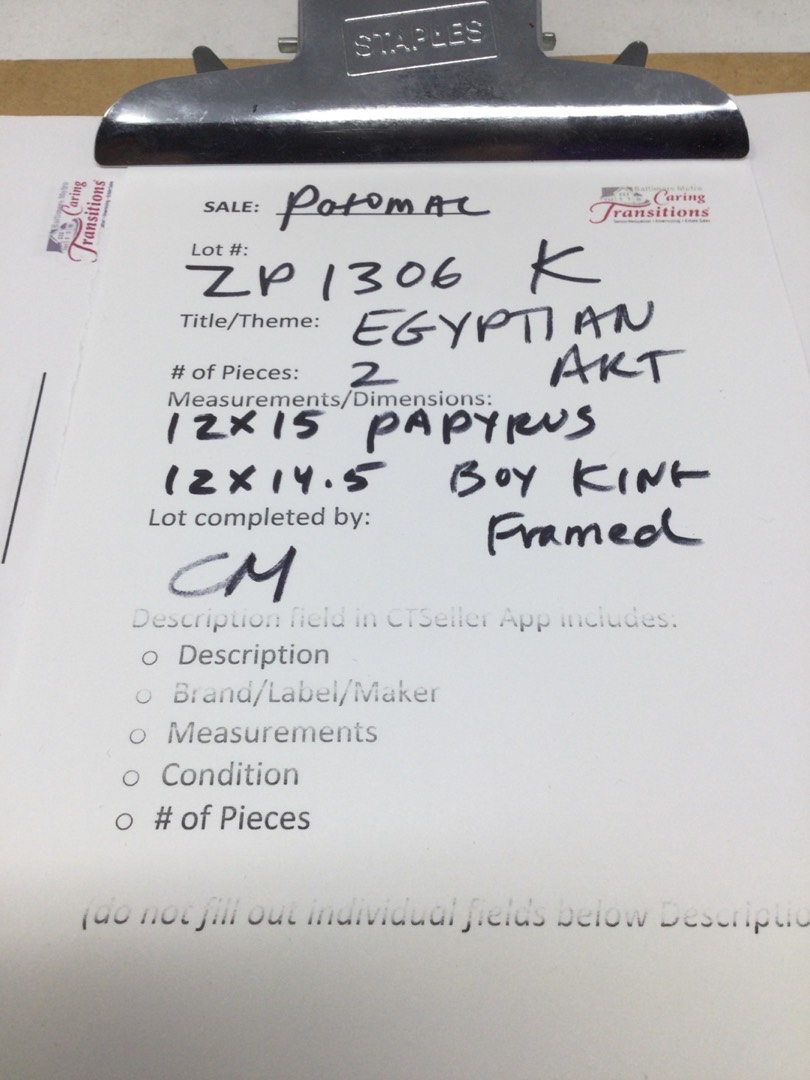 STAPLES
SALE: Potomac
Baltimore Metro
Caring
Transitions
Caring
Transitions
Lot #:
ZP 1306 K
Title/Theme: EGYPTIAN
# of Pieces: 2 ART
Measurements/Dimensions:
12x15 PAPYRUS
12x14.5 BOY KING
Lot completed by: Framed
CM
Description field in CTSeller App includes:
○ Description
○ Brand/Label/Maker
○ Measurements
○ Condition
○ # of Pieces
(do not fill out individual fields below Descriptio